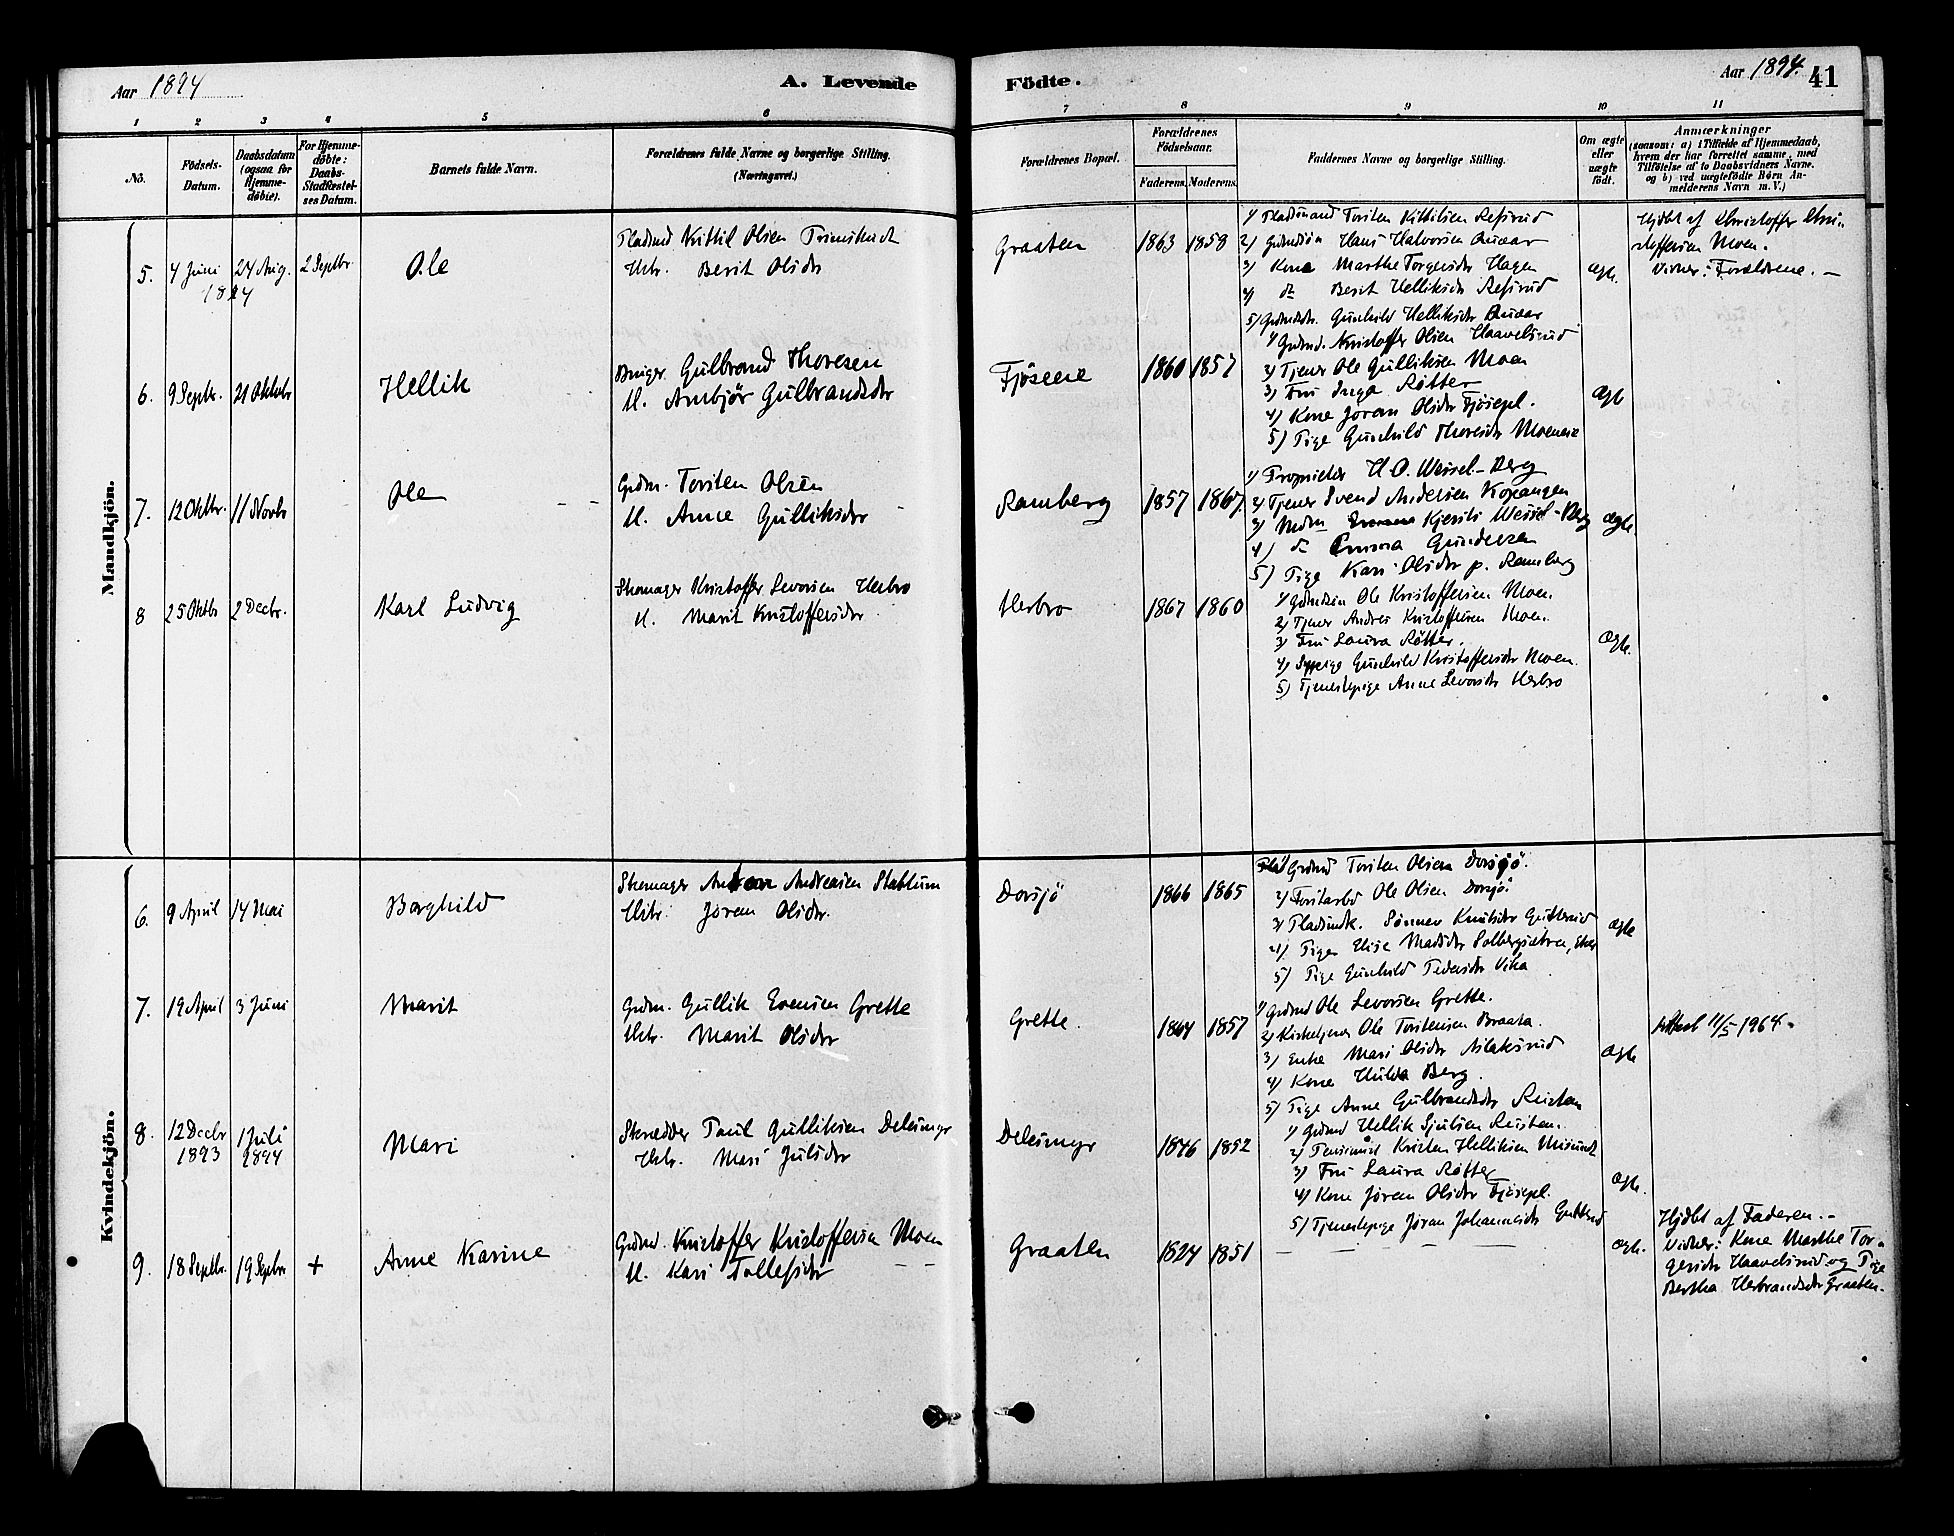 Aar 1894
A. Levende
Födte.
Aar 1894.
41
1 2 3 4 5 6 7 8 9 10 11
No.
Födsels-Datum.
Daabsdatum (ogsaa for Hjemme-döbte).
For Hjemme-döbte: Daabs-Stadfæstel-ses Datum.
Barnets fulde Navn.
Forældrenes fulde Navne og borgerlige Stilling.
(Næringsvei.)
Forældrenes Bopæl.
Forældrenes Födselsaar.
Faderens. Moderens.
Faddernes Navne og borgerlige Stilling.
Om ægte eller uægte födt.
Anmærkninger
(saasom: a) i Tilfælde af Hjemmedaab, hvem der har forrettet samme, med Tilföielse af to Daabsvidners Navne. og b) ved uægtefödte Börn An-melderens Navn m. V.)
Mandkjön.
5. 4 Juni 1894 24 Aug. 2 Septbr. Ole
Pladsmd Kittil Olsen
Hstr. Berit Olsdr
Graaten 1863 1858
1) Pladsmand Torsten Kittilsen Refsrud
2) Grdmdsön Hans Halvorsen
3) Kone Marthe Torgersdr Hagen
4) do Berit Helliksdr Refsrud
5) Grdmdsdtr. Gunhild Helliksdr
ægte.
Hjdbt af Christoffer Chri-
stoffersen Moen.
Vidner: Forældrene. –
6. 9 Septbr. 21 Oktbr Hellik
Gulbrand Thoresen
H. Ambjör Gulbrandsdr
Fjösene 1860 1857
1) Grdmd. Kristoffer Olsen Haavelsrud
2) Tjener Ole Gulliksen Moen
3) Fru Inga Røtter
4) Kone Joran Olsdr Fjösepl.
5) Pige Gunhild Thoresdr Moeneie
ægte
7. 12 Oktbr. 11 Novbr Ole
Grdm. Torsten Olsen
H. Anne Gulliksdr
Ramberg 1857 1867.
1) Proprietær H. O. Wessel-Berg
2) Tjener Svend Andersen Kopangen
3) Mdm Kjersti Wessel-Berg
4) do Emma Gundersen
5) Pige Kari Olsdr p. Ramberg
ægte.
8 25 Oktbr 2 Decbr. Karl Ludvig
Skomager Kristoffer Levorsen Herbro
H. Marit Kristoffersdr
Herbro 1867 1860
1) Grdmdsön Ole Kristoffersen Moen.
2) Tjener Andres Kristoffersen Moen.
3) Fru Laura Røtter.
4) Sypige Gunhild Kristoffersdr Moen.
5) Tjenestepige Anne Levorsdr Herbro
ægte.
Kvindekjön.
6. 9 April 14 Mai Borghild
Skomager Anton Andreasen Stablum
Hstr. Jøran Olsdr.
Dorsjö 1866 1865
1) Grdmd Torsten Olsen Dorsjö.
2) Ole Olsen Dorsjö.
3) Pladsmdk. Sönnev Knutsdr Gutterud
4) Pige Elise Madsdr
5) Pige Gunhild Pedersdr Vika
ægte
7. 19 April 3 Juni Marit
Grdm. Gullik Evensen Grette
Hstr. Marit Olsdr
Grette. 1864 1857
1) Grdmd Ole Levorsen Grette.
2) Kirketjener Ole Torstensen Braata.
3) Enke Mari Olsdr Aslaksrud
4) Kone Hilda Berg.
5) Pige Anne Gulbrandsdr Reistan
ægte
11/5-1964.
8. 12 Decbr 1893 1 Juli 1894 Mari
Skrædder Paul Gulliksen Deleimyr
Hstr. Mari Julsdr
Deleimyr 1846 1852
1) Grdmd Hellik Sjulsen Reistan.
2) Pensionist Kristen Helliksen
3) Fru Laura Røtter
4) Kone Jøran Olsdr Fjösepl.
5) Tjenestepige Jøran Johannesdr Gutterud
ægte.
9. 18 Septbr. 19 Septbr + Anne Karine
Grdmd. Kristoffer Kristoffersen Moen
H. Kari Tollefsdr
Graaten 1824 1851
ægte.
Hjdbt af Faderen. –
Vidner: Kone Marthe Tor-
gersdr Haavelsrud og Pige
Bertha Herbrandsdr Graaten.